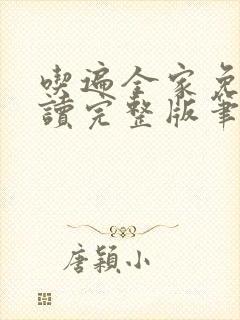 喫遍全家免
讀完整版筆
唐穎小